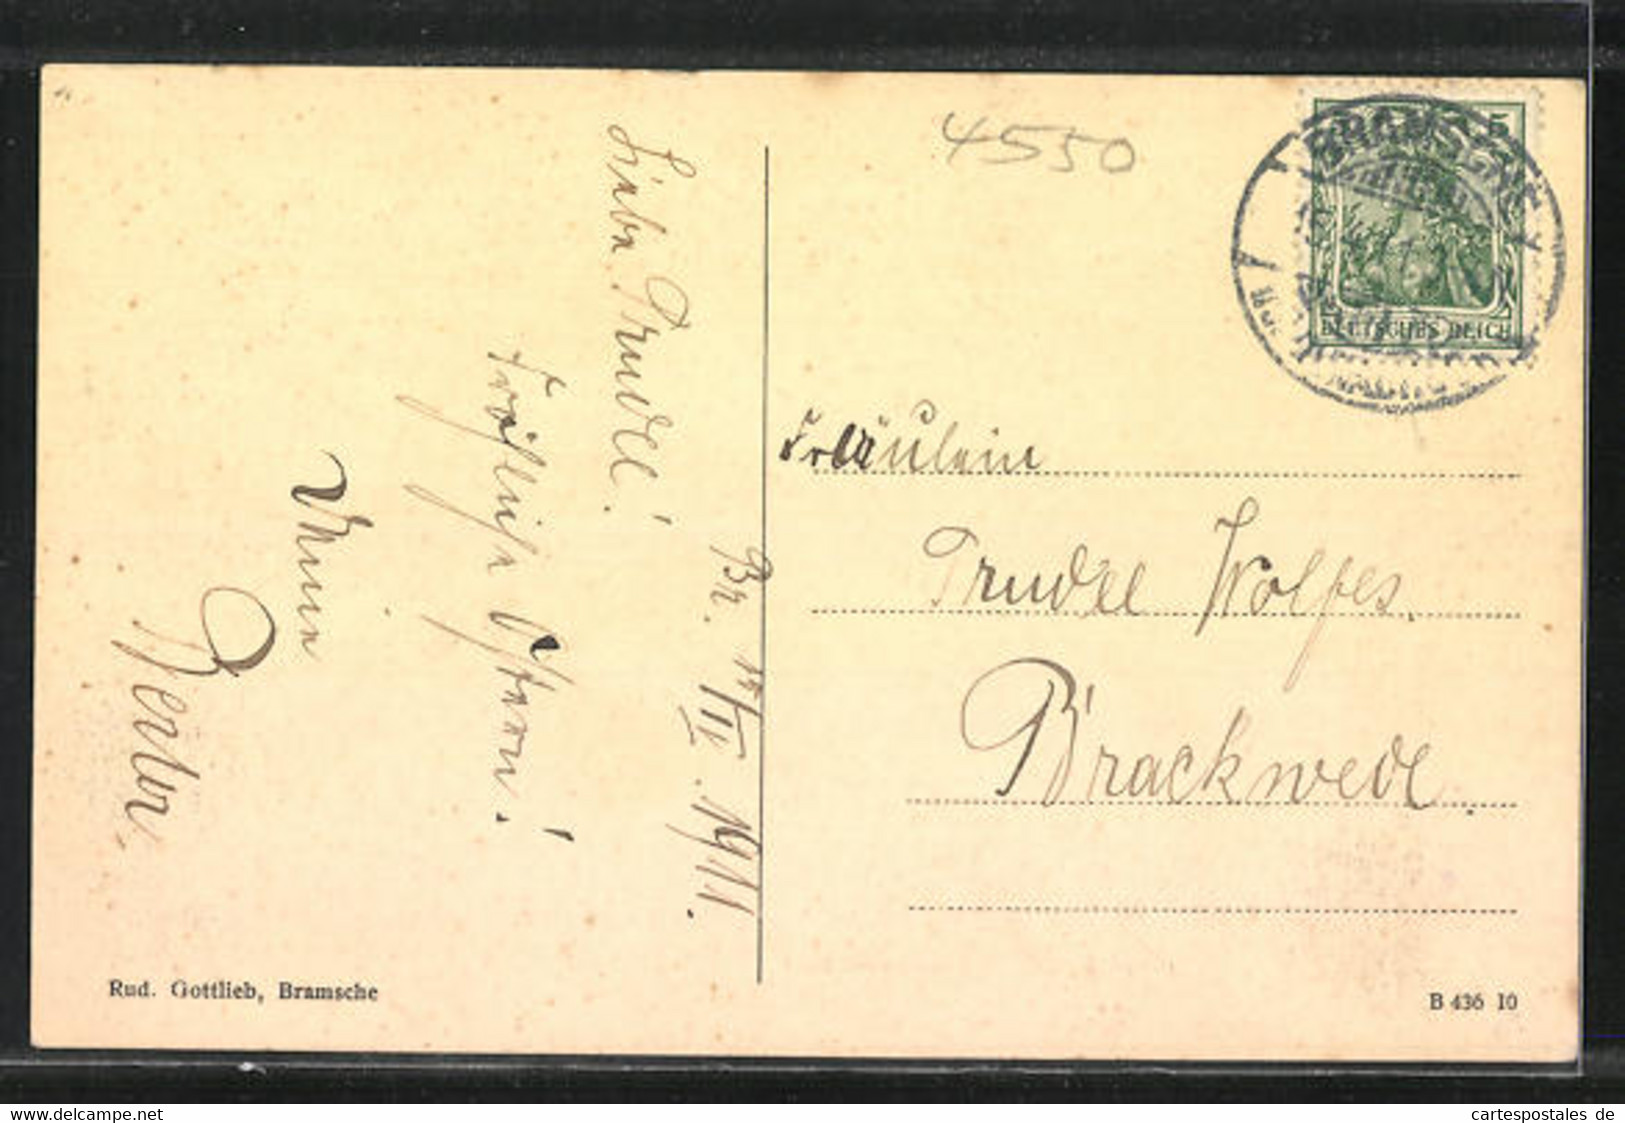 4550
BRAMSCHE
5
DEUTSCHES REICH
Br. 15/IV. 1911.
Liebe Trudel!
Fröhliche Ostern!
Fräulein
Trudel Wolfes.
Brackwede.
Rud. Gottlieb, Bramsche
B 436 10
www.delcampe.net
cartespostales de